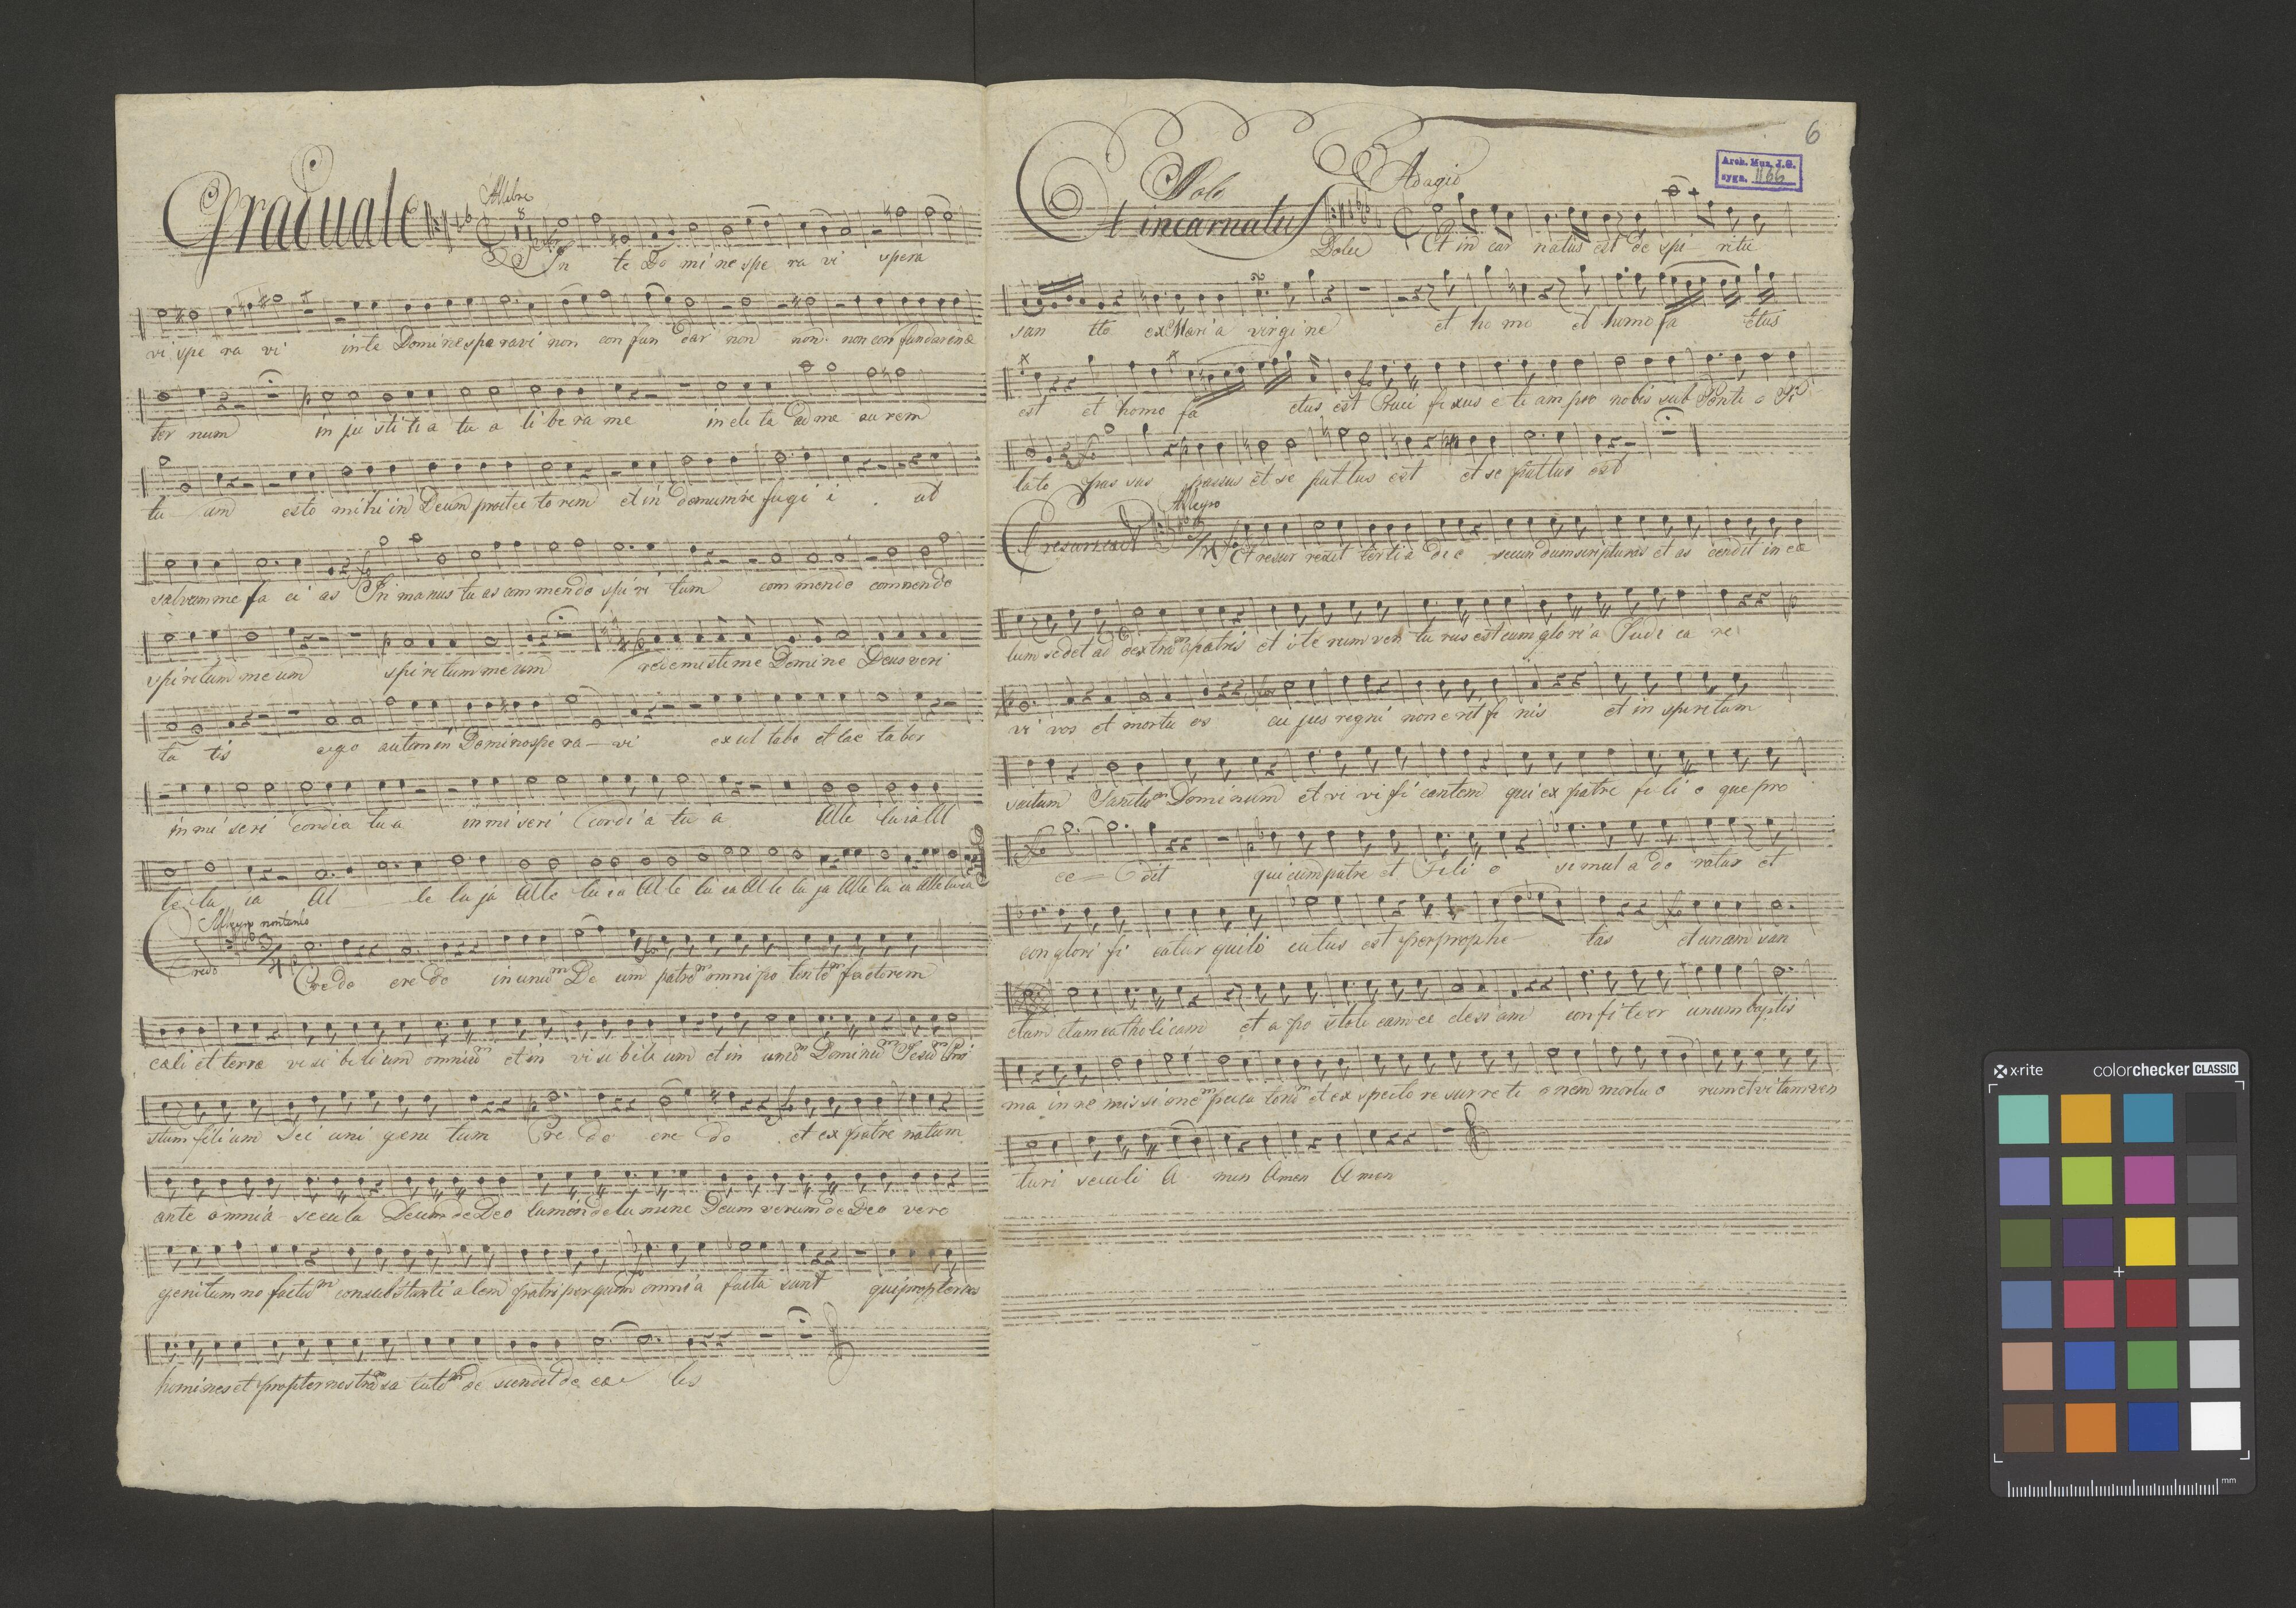 Graduale
Allabre
In te Do mi ne spe ra vi spera
vi spe ra vi in te Domine spe ravi non con fun dar non non non con fundar in æ
ter num in ju sti ti a tu a li be ra me in cli na ad me aurem
tu am esto mihi in Deum protec torem et in domum re fugi i ut
salvum me fa ci as In manus tu as commendo spi ri tum commendo commendo
spi ritum meum spi ritum meum redemisti me Domine Deus veri
ta tis ego autem in Domino spe ra - vi exul tabo et lae tabor
in mi seri cordia tua in mi seri Cordi a tu a Alle luia All
le lu ia Al le lu ja Alle lu ia Al le lu ia Al le lu ja Alle lu ia Alleluia
Allegro non tanto
Credo Credo cre do in unum De um patrem omni po tentem factorem
cæli et terræ vi si bi li um omnium et in vi si bili um et in unum Dominum Jesum Chri
stum fili um Dei uni geni tum Cre do cre do et ex patre natum
ante omnia secula Deum de Deo lumen de lu mine Deum verum de Deo vero
genitum no factum consubstanti a lem patri per quem omnia facta sunt qui propter nos
homines et propter nostram sa lutem de scendit de cae lis
6
Arch. Muz. J.G.
sygn. 1166
Solo Adagio
Et incarnatus
Dolce Et in car natus est de spi - ritu
san tto ex Maria virgine et ho mo et homo fa ctus
est et homo fa ctus est Cruci fixus e ti am pro nobis sub Ponti o Pi
lato pas sus passus et se pultus est et se pultus est
Allegro
Et resurrexit Et resur rexit tertia die secundum scripturas et as cendit in cæ
lum sedet ad dextram patris et ite rum ven tu rus est cum glori a Judi ca re
vi vos et mortu os cu jus regni non erit fi nis et in spiritum
sactum Sanctum Dominum et vi vi fi cantem qui ex patre fi li o que pro
ce - dit qui cum patre et Fili o simul a do ratur et
con glori fi catur qui lo cutus est per prophe - tas et unam san
ctam ctam catholicam et a po stoli cam ec clesi am con fi te or unum baptis
ma in re missi onem peca torum et ex specto re surre ti onem mortu o rum et vitam ven
turi seculi A men Amen Amen
x-rite colorchecker CLASSIC
mm